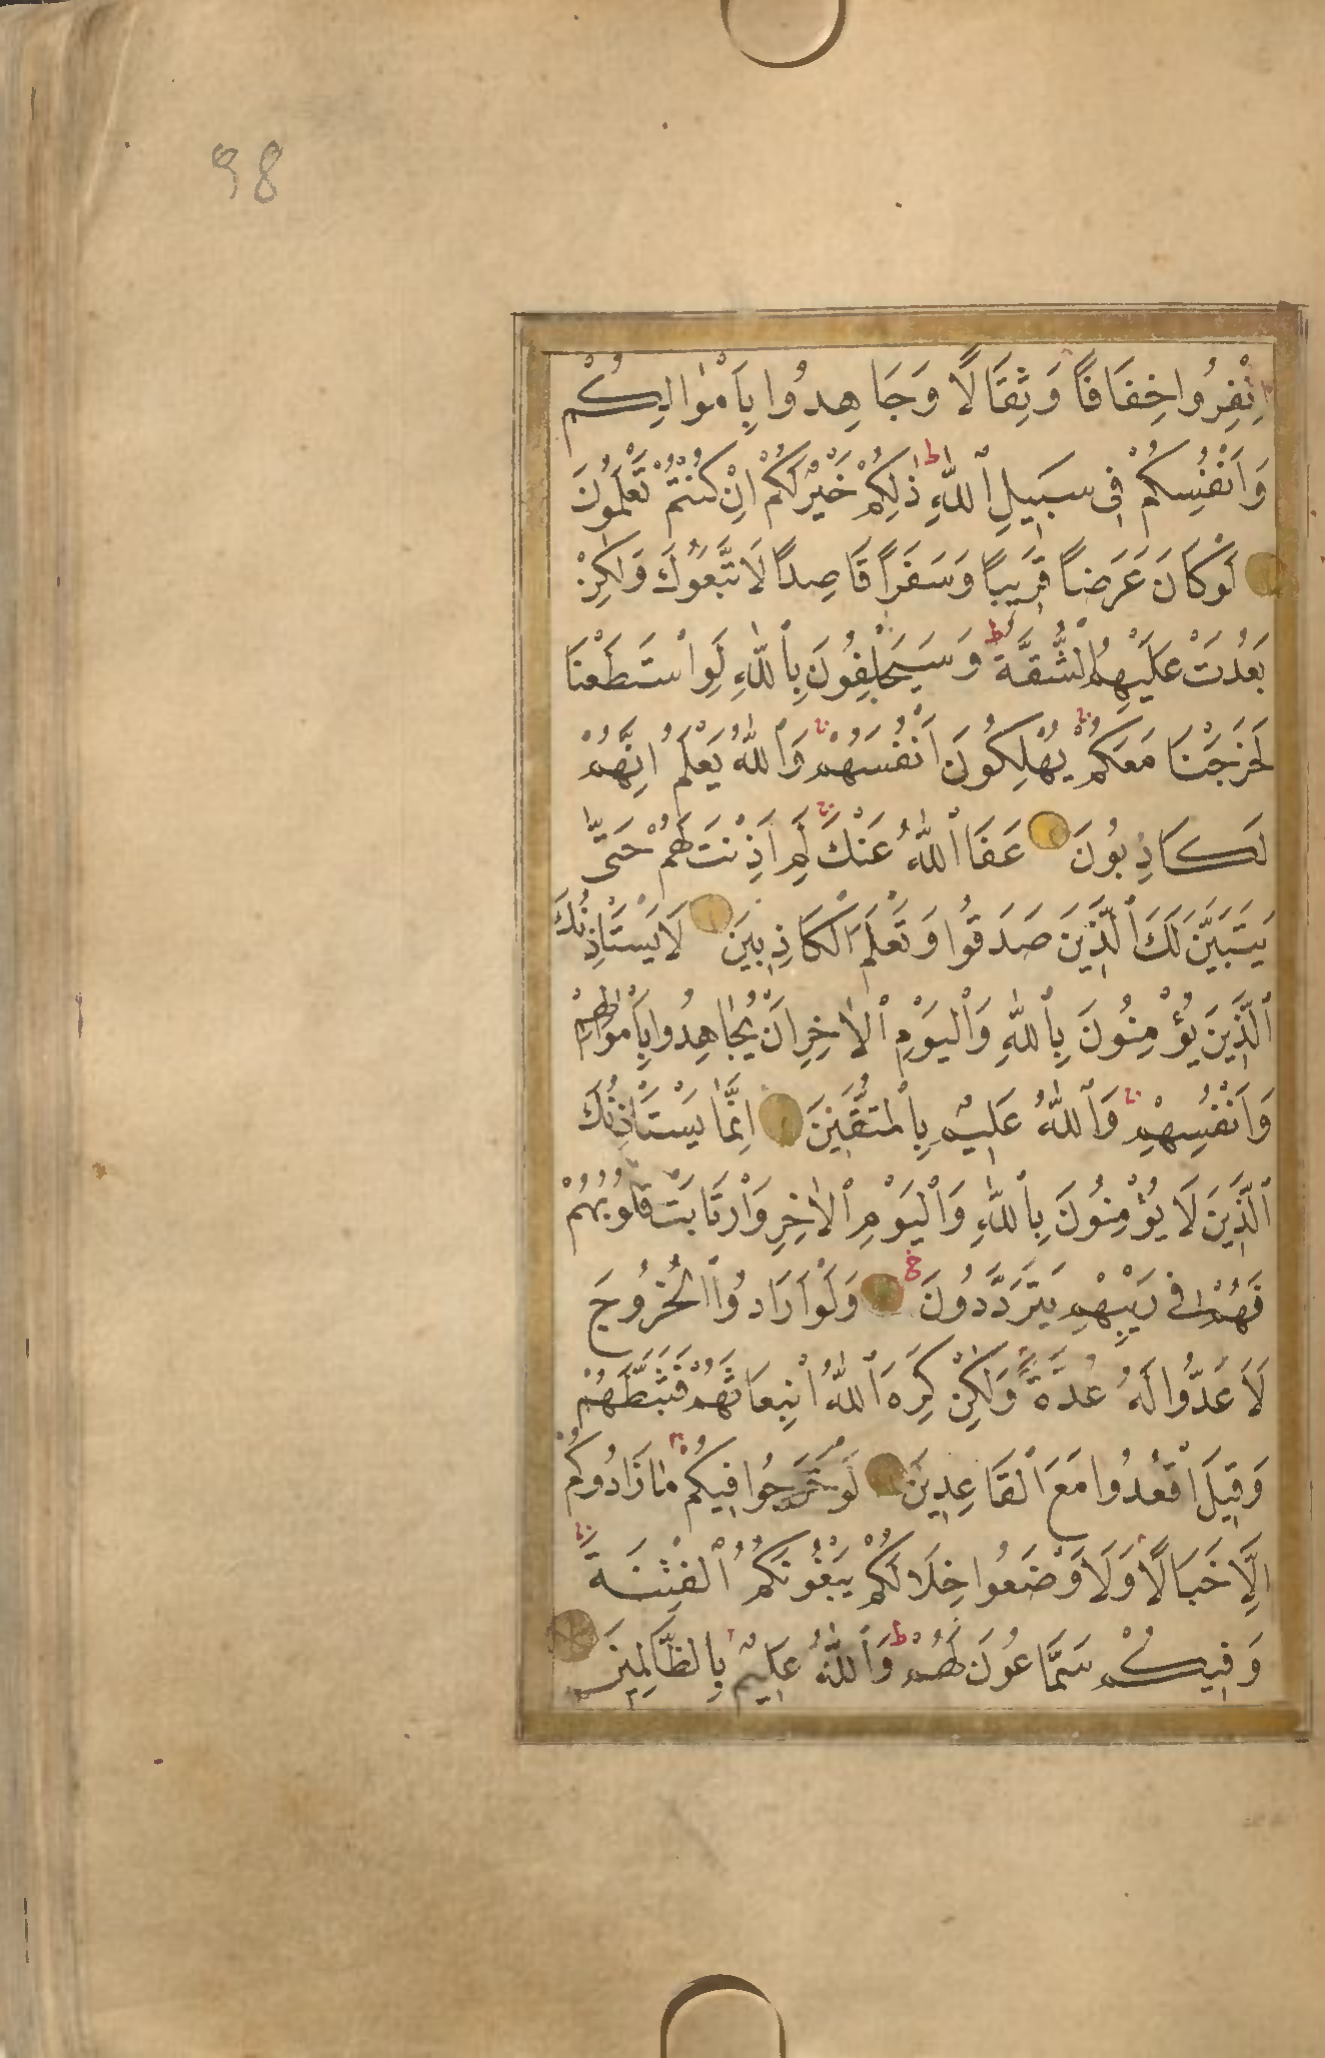 98
اِنْفِرُوا خِفَافًا وَثِقَالًا وَجَاهِدُوا بِاَمْوٰالِكُمْ
وَاَنْفُسِكُمْ فِى سَبِيلِ ٱللّٰهِ ط ذٰلِكُمْ خَيْرٌ لَكُمْ اِنْ كُنْتُمْ تَعْلَمُونَ
لَوْ كَانَ عَرَضاً قَرِيباً وَسَفَراً قَاصِداً لَاتَّبَعُوكَ وَلٰكِنْ
بَعُدَتْ عَلَيْهِمُ ٱلشُّقَّةُ ط وَسَيَحْلِفُونَ بِٱللّٰهِ لَوِاسْتَطَعْنَا
لَخَرَجْنَا مَعَكُمْ يُهْلِكُونَ اَنْفُسَهُمْ وَٱللّٰهُ يَعْلَمُ اِنَّهُمْ
لَكَاذِبُونَ عَفَا ٱللّٰهُ عَنْكَ لِمَ اَذِنْتَ لَهُمْ حَتّٰى
يَتَبَيَّنَ لَكَ ٱلَّذِينَ صَدَقُوا وَتَعْلَمَ ٱلْكَاذِبِينَ لَا يَسْتَاْذِنُكَ
ٱلَّذِينَ يُؤْمِنُونَ بِٱللّٰهِ وَٱلْيَوْمِ ٱلْاٰخِرِ اَنْ يُجٰاهِدُوا بِاَمْوٰالِهِمْ
وَاَنْفُسِهِمْ وَٱللّٰهُ عَلِيمٌ بِالْمُتَّقِينَ اِنَّمٰا يَسْتَاْذِنُكَ
ٱلَّذِينَ لَا يُؤْمِنُونَ بِٱللّٰهِ وَٱلْيَوْمِ ٱلْاٰخِرِ وَارْتَابَتْ قُلُوبُهُمْ
فَهُمْ فِى رَيْبِهِمْ يَتَرَدَّدُونَ وَلَوْ اَرَادُوا ٱلْخُرُوجَ
لَاَعَدُّوا لَهُ عُدَّةً وَلٰكِنْ كَرِهَ ٱللّٰهُ انْبِعَاثَهُمْ فَثَبَّطَهُمْ
وَقِيلَ اقْعُدُوا مَعَ ٱلْقَاعِدِينَ لَوْ خَرَجُوا فِيكُمْ مٰا زَادُوكُمْ
اِلَّا خَبَالًا وَلَاَوْضَعُوا خِلَالَكُمْ يَبْغُونَكُمُ ٱلْفِتْنَةَ
وَفِيكُمْ سَمَّاعُونَ لَهُمْ ط وَٱللّٰهُ عَلِيمٌ بِالظَّالِمِينَ